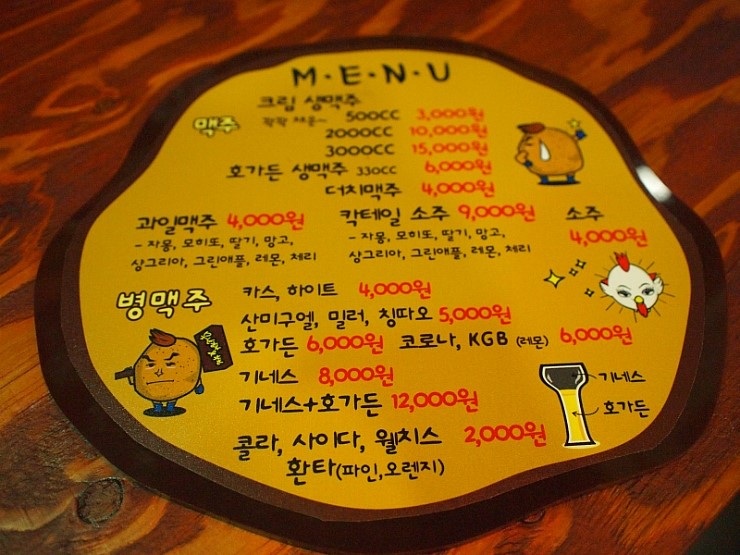 M·E·N·U
맥주
크림 생맥주
꽉꽉 채운~ 500CC 3,000원
2000CC 10,000원
3000CC 15,000원
호가든 생맥주 330CC 6,000원
더치맥주 4,000원
과일맥주 4,000원
- 자몽, 모히또, 딸기, 망고,
상그리아, 그린애플, 레몬, 체리
칵테일 소주 9,000원
- 자몽, 모히또, 딸기, 망고,
상그리아, 그린애플, 레몬, 체리
소주
4,000원
병맥주
카스, 하이트 4,000원
산미구엘, 밀러, 칭따오 5,000원
호가든 6,000원 코로나, KGB (레몬) 6,000원
기네스 8,000원
기네스+호가든 12,000원
기네스
호가든
콜라, 사이다, 웰치스 2,000원
환타(파인,오렌지)